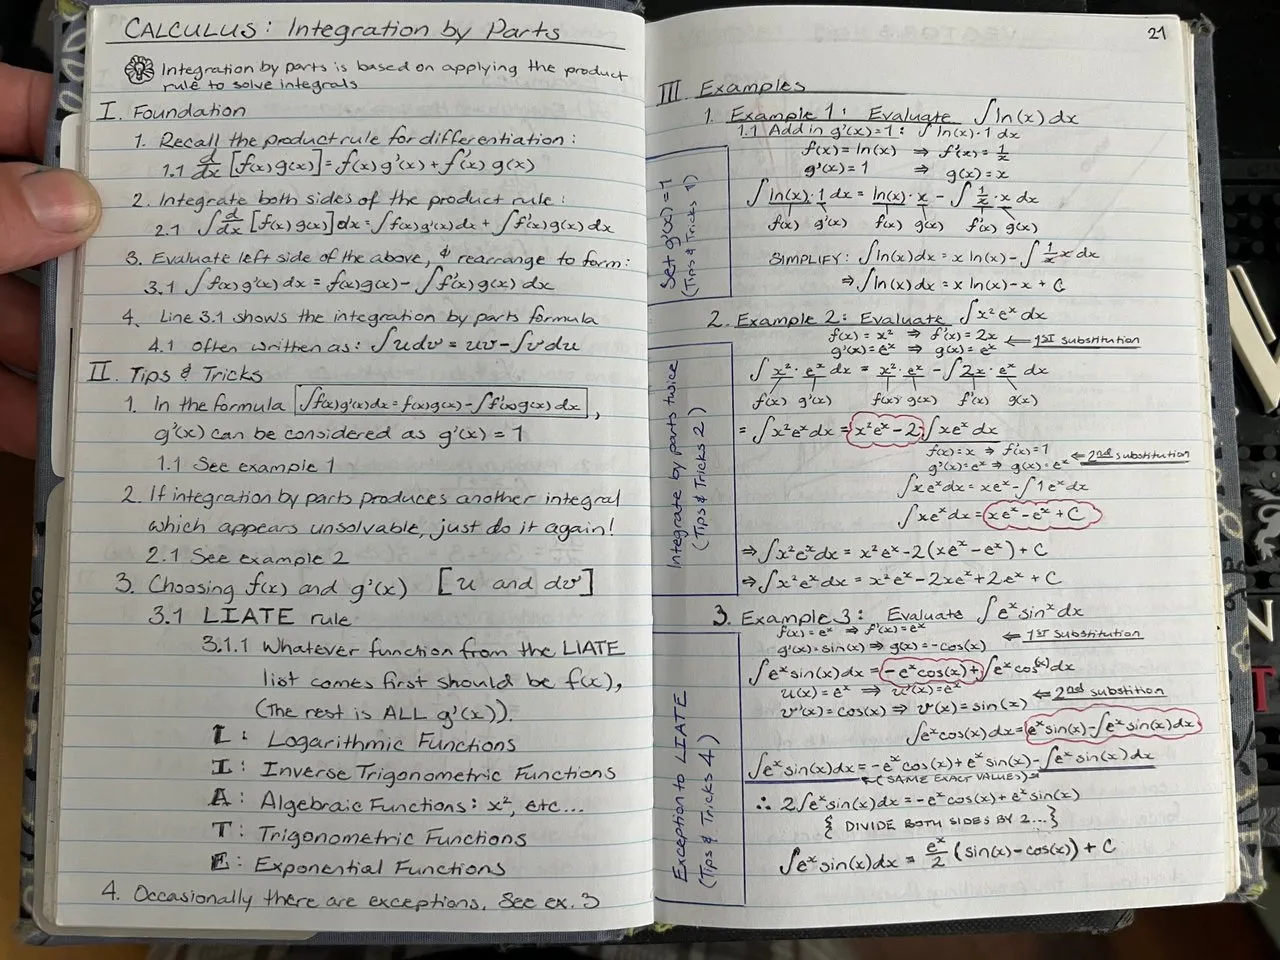 CALCULUS: Integration by Parts
Integration by parts is based on applying the product
rule to solve integrals
I. Foundation
1. Recall the product rule for differentiation:
1.1 d/dx [f(x)g(x)] = f(x)g'(x) + f'(x)g(x)
2. Integrate both sides of the product rule:
2.1 ∫d/dx [f(x)g(x)]dx = ∫f(x)g'(x)dx + ∫f'(x)g(x)dx
3. Evaluate left side of the above, & rearrange to form:
3.1 ∫f(x)g'(x)dx = f(x)g(x) - ∫f'(x)g(x)dx
4. Line 3.1 shows the integration by parts formula
4.1 Often written as: ∫udv = uv - ∫vdu
II. Tips & Tricks
1. In the formula ∫f(x)g'(x)dx = f(x)g(x) - ∫f'(x)g(x)dx,
g'(x) can be considered as g'(x) = 1
1.1 See example 1
2. If integration by parts produces another integral
which appears unsolvable, just do it again!
2.1 See example 2
3. Choosing f(x) and g'(x) [u and dv]
3.1 LIATE rule
3.1.1 Whatever function from the LIATE
list comes first should be f(x),
(The rest is ALL g'(x)).
L: Logarithmic Functions
I: Inverse Trigonometric Functions
A: Algebraic Functions: x², etc...
T: Trigonometric Functions
E: Exponential Functions
4. Occasionally there are exceptions. See ex. 3
21
III Examples
1. Example 1: Evaluate ∫ln(x)dx
1.1 Add in g'(x)=1: ∫ln(x)·1dx
f(x)=ln(x) ⇒ f'(x)=1/x
g'(x)=1 ⇒ g(x)=x
∫ln(x)·1dx = ln(x)·x - ∫1/x·x dx
f(x) g'(x) f(x) g'(x) f'(x) g(x)
SIMPLIFY: ∫ln(x)dx = x ln(x) - ∫1/x x dx
⇒ ∫ln(x)dx = x ln(x) - x + C
Set g'(x)=1
(Tips & Tricks 1)
2. Example 2: Evaluate ∫x²eˣdx
f(x)=x² ⇒ f'(x)=2x ⇐ 1ST substitution
g'(x)=eˣ ⇒ g(x)=eˣ
∫x²·eˣdx = x²·eˣ - ∫2x·eˣdx
f(x) g'(x) f(x) g(x) f'(x) g(x)
= ∫x²eˣdx = x²eˣ - 2∫xeˣdx
f(x)=x ⇒ f'(x)=1
g'(x)=eˣ ⇒ g(x)=eˣ ⇐ 2nd substitution
∫xeˣdx = xeˣ - ∫1eˣdx
∫xeˣdx = xeˣ - eˣ + C
⇒ ∫x²eˣdx = x²eˣ - 2(xeˣ - eˣ) + C
⇒ ∫x²eˣdx = x²eˣ - 2xeˣ + 2eˣ + C
Integrate by parts twice
(Tips & Tricks 2)
3. Example 3: Evaluate ∫eˣsinˣdx
f(x)=eˣ ⇒ f'(x)=eˣ
g'(x)=sin(x) ⇒ g(x)=-cos(x) ⇐ 1ST substitution
∫eˣsin(x)dx = -eˣcos(x) + ∫eˣcos(x)dx
u(x)=eˣ ⇒ u'(x)=eˣ
v'(x)=cos(x) ⇒ v(x)=sin(x) ⇐ 2nd substition
∫eˣcos(x)dx = eˣsin(x) - ∫eˣsin(x)dx
∫eˣsin(x)dx = -eˣcos(x) + eˣsin(x) - ∫eˣsin(x)dx
(SAME EXACT VALUES)
∴ 2∫eˣsin(x)dx = -eˣcos(x) + eˣsin(x)
{ DIVIDE BOTH SIDES BY 2... }
∫eˣsin(x)dx = eˣ/2 (sin(x) - cos(x)) + C
Exception to LIATE
(Tips & Tricks 4)